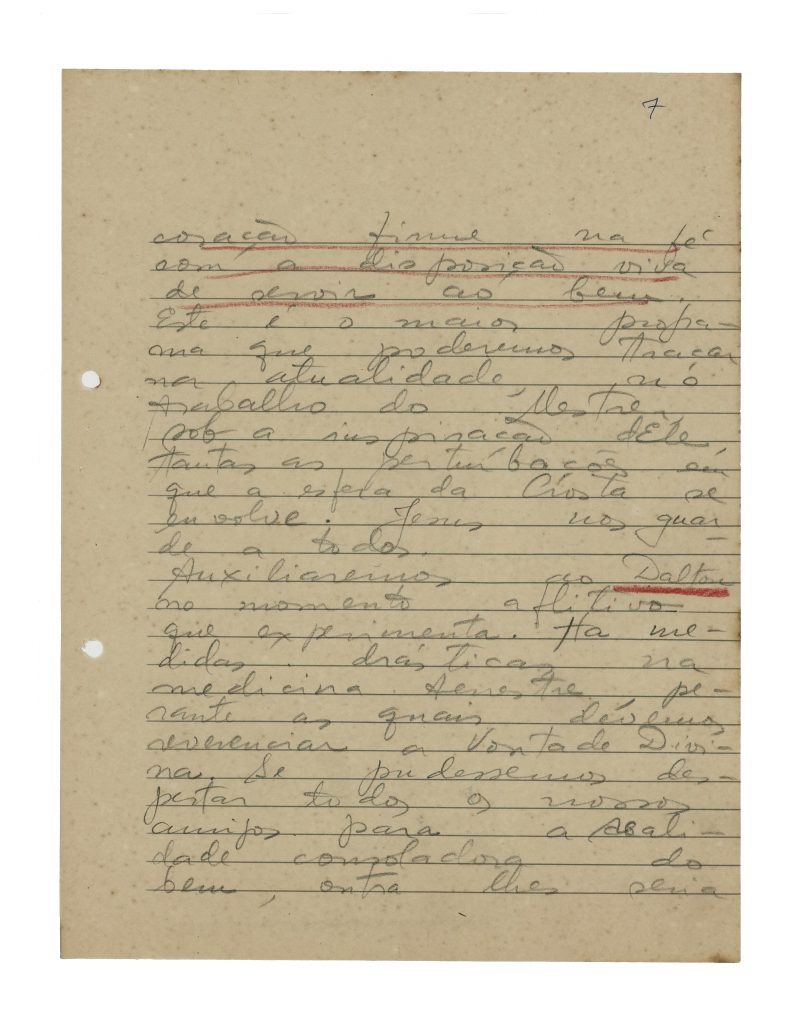 7
coração firme na fé
com a disposição viva
de servir ao bem.
Este é o maior progra-
ma que poderemos traçar
na atualidade, nó
trabalho do Mestre,
sob a inspiração dEle
tantas as perturbações em
que a esfera da Crosta se
envolve. Jesus nos guar-
de a todos.
Auxiliaremos ao Dalton
no momento aflitivo
que experimenta. Ha me-
didas drásticas na
medicina terrestre, pe-
rante as quais devemos
reverenciar a Vontade Divi-
na. Se pudessemos des-
pertar todos os nossos
amigos para a reali-
dade consoladora do
bem, outra lhes seria